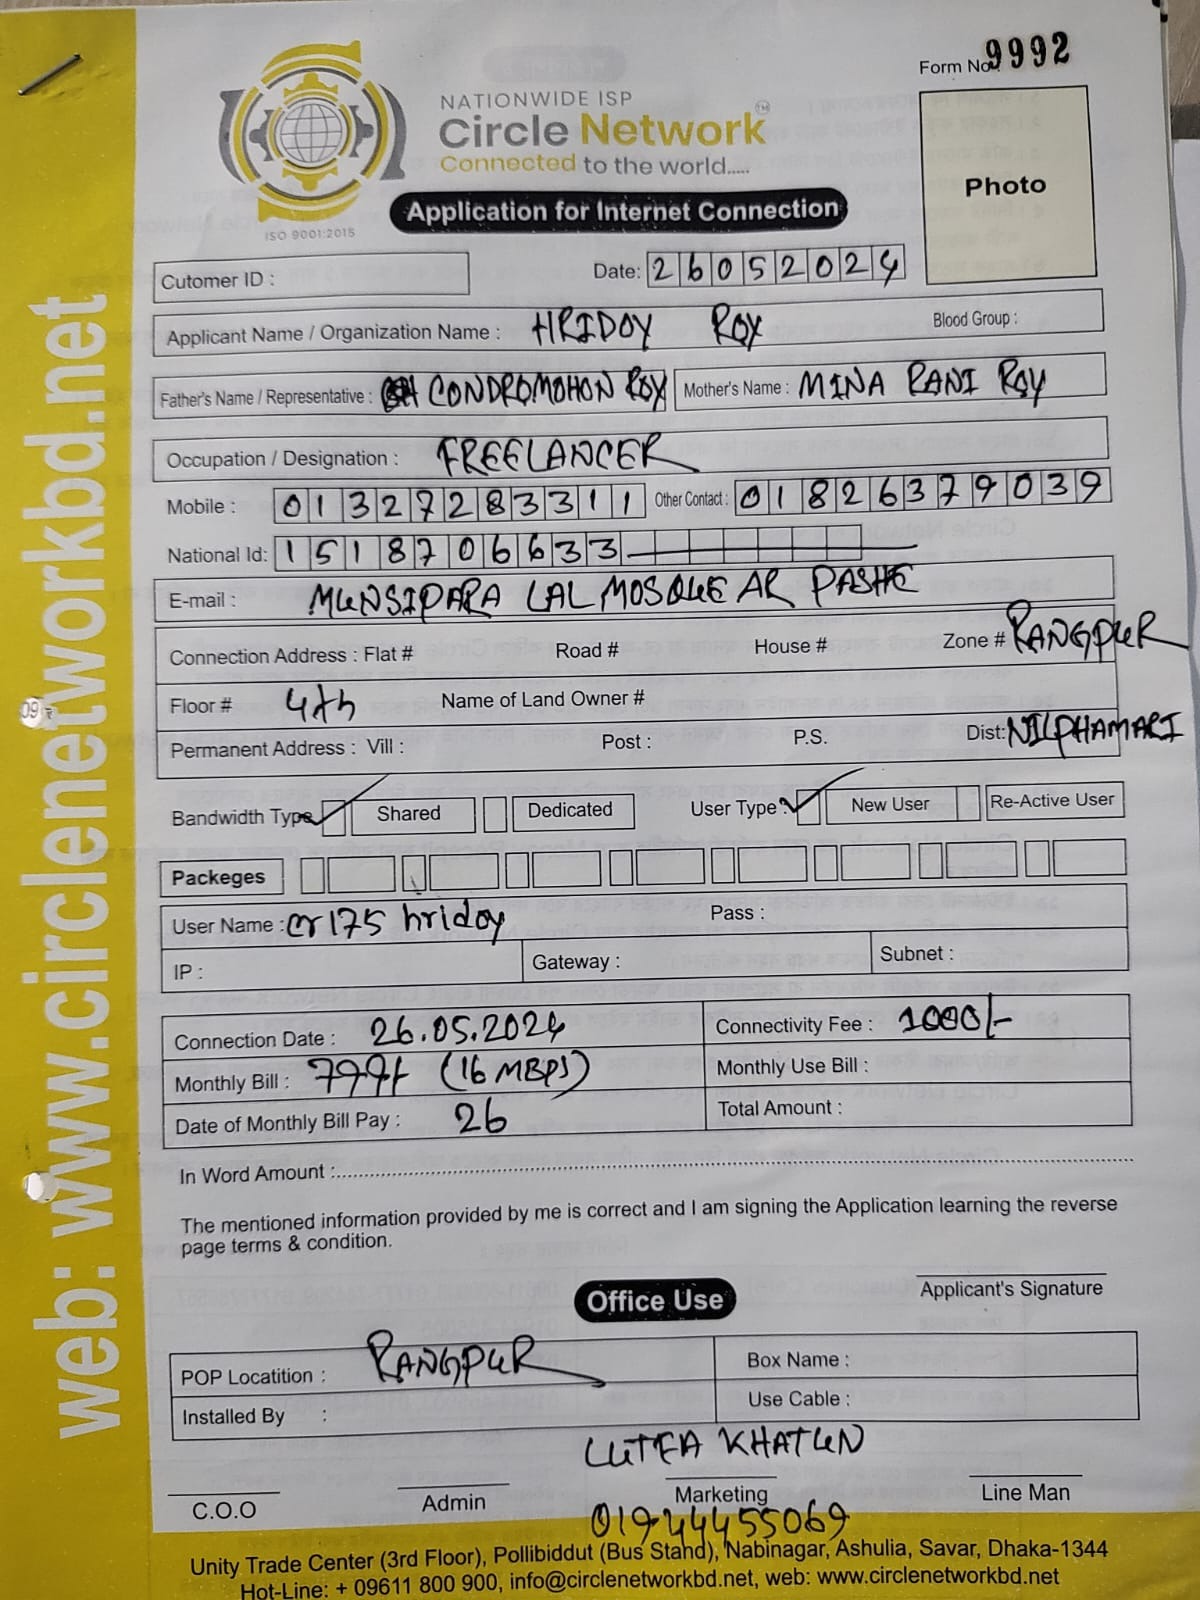 Form No. 9992
NATIONWIDE ISP
Circle Network TM
Connected to the world.....
ISO 9001:2015
Application for Internet Connection
Photo
Cutomer ID :
Date: 26052024
Applicant Name / Organization Name : HRIDOY ROY Blood Group :
Father's Name / Representative : CONDROMOHON ROY Mother's Name : MINA RANI ROY
Occupation / Designation : FREELANCER
Mobile : 01327283311 Other Contact : 01826379039
National Id: 1518706633
E-mail : MUNSIPARA LAL MOSQUE AR PASHE
Connection Address : Flat # Road # House # Zone # RANGPUR
Floor # 4th Name of Land Owner #
Permanent Address : Vill : Post : P.S. Dist: NILPHAMARI
Bandwidth Type Shared Dedicated User Type : New User Re-Active User
Packeges
User Name : cr175 hridoy Pass :
IP : Gateway : Subnet :
Connection Date : 26.05.2024 Connectivity Fee : 1000/-
Monthly Bill : (16 MBPS) Monthly Use Bill :
Date of Monthly Bill Pay : 26 Total Amount :
In Word Amount :
The mentioned information provided by me is correct and I am signing the Application learning the reverse
page terms & condition.
Applicant's Signature
Office Use
POP Locatition : RANGPUR Box Name :
Installed By : Use Cable :
LUTFA KHATUN
C.O.O Admin Marketing Line Man
01944455069
Unity Trade Center (3rd Floor), Pollibiddut (Bus Stand), Nabinagar, Ashulia, Savar, Dhaka-1344
Hot-Line: + 09611 800 900, info@circlenetworkbd.net, web: www.circlenetworkbd.net
web: www.circlenetworkbd.net